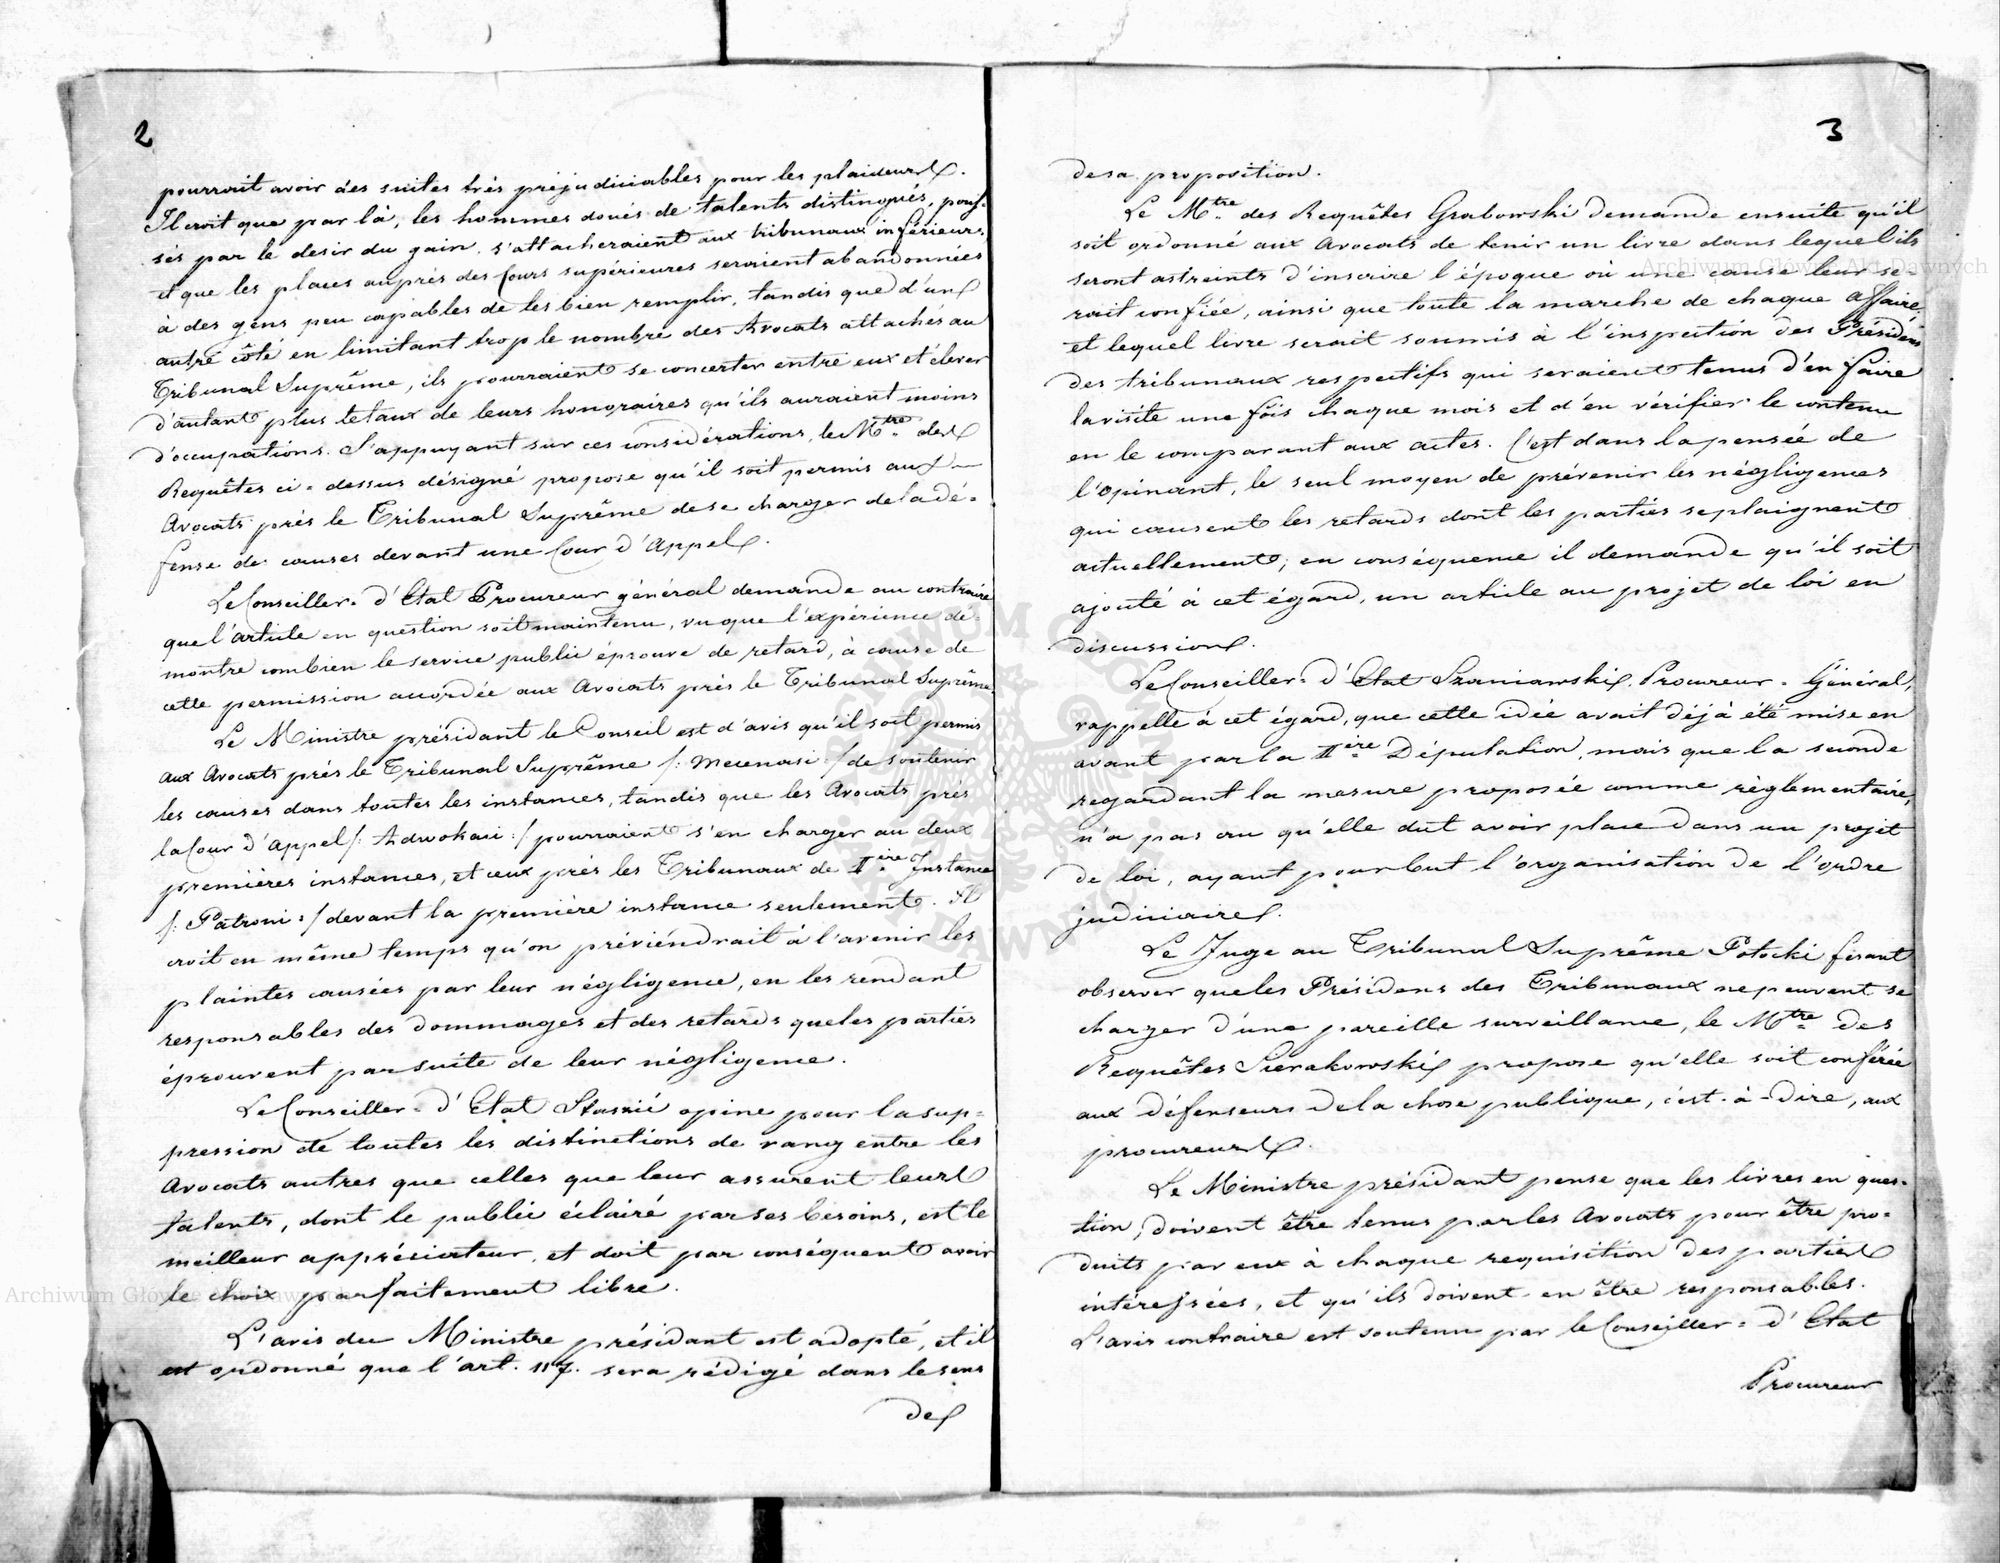 2
pourrait avoir des suites très préjudiciables pour les plaideurs.
Il croit que par là, les hommes doués de talents distingués, pous-
sés par le desir du gain, s'attacheraient aux tribunaux inférieurs,
et que les places auprès des Cours supérieures seraient abandonnées
à des gens peu capables de les bien remplir, tandis que d'un
autre côté en limitant trop le nombre des Avocats attachés au
Tribunal Suprême, ils pourraient se concerter entre eux et élever
d'autant plus le taux de leurs honoraires qu'ils auraient moins
d'occupations. S'appuyant sur ces considérations, le Mtre des
Requêtes ci-dessus désigné propose qu'il soit permis aux
Avocats près le Tribunal Suprême de se charger de la dé-
fense de causes devant une Cour d'Appel.
Le Conseiller-d'Etat Procureur général demande au contraire
que l'article en question soit maintenu, vu que l'expérience dé-
montre combien le service public éprouve de retard, à cause de
cette permission accordée aux Avocats près le Tribunal Suprême.
Le Ministre présidant le Conseil est d'avis qu'il soit permis
aux Avocats près le Tribunal Suprême /: Mecenasi :/ de soutenir
les causes dans toutes les instances, tandis que les Avocats près
la Cour d'Appel /: Adwokaci :/ pourraient s'en charger au deux
premières instances, et ceux près les Tribunaux de Iière Instance
/: Patroni :/ devant la première instance seulement. Il
croit en même temps qu'on préviendrait à l'avenir les
plaintes causées par leur négligence, en les rendant
responsables des dommages et des retards que les parties
éprouvent par suite de leur négligence.
Le Conseiller-d'Etat Staszic opine pour la sup-
pression de toutes les distinctions de rang entre les
Avocats autres que celles que leur assurent leurs
talents, dont le public éclairé par ses besoins, est le
meilleur appréciateur, et doit par conséquent avoir
le choix parfaitement libre.
L'avis du Ministre présidant est adopté, et il
est ordonné que l'art. 117. sera rédigé dans le sens
de
3
de sa proposition.
Le Mtre des Requêtes Grabowski demande ensuite qu'il
soit ordonné aux Avocats de tenir un livre dans lequel ils
seront astreints d'inscrire l'époque où une cause leur se-
rait confiée, ainsi que toute la marche de chaque affaire,
et lequel livre serait soumis à l'inspection des Présidens
des tribunaux respectifs qui seraient tenus d'en faire
la visite une fois chaque mois et d'en vérifier le contenu
en le comparant aux actes. C'est dans la pensée de
l'opinant, le seul moyen de prévenir les négligences
qui causent les retards dont les parties se plaignent
actuellement; en conséquence il demande qu'il soit
ajouté à cet égard, un article au projet de loi en
discussion.
Le Conseiller-d'Etat Szaniawski, Procureur-Général,
rappelle à cet égard, que cette idée avait déjà été mise en
avant par la Iière Députation, mais que la seconde
regardant la mesure proposée comme règlementaire,
n'a pas cru qu'elle dut avoir place dans un projet
de loi, ayant pour but l'organisation de l'ordre
judiciaire.
Le Juge au Tribunal Suprême Potocki fesant
observer que les Présidens des Tribunaux ne peuvent se
charger d'une pareille surveillance, le Mtre des
Requêtes Sierakowski propose qu'elle soit conférée
aux défenseurs de la chose publique, c'est-à-dire, aux
procureurs.
Le Ministre présidant pense que les livres en ques-
tion, doivent être tenus par les Avocats pour être pro-
duits par eux à chaque requisition des parties
intéressées, et qu'ils doivent en être responsables.
L'avis contraire est soutenu par le Conseiller-d'Etat
Procureur
Archiwum Główne Akt Dawnych